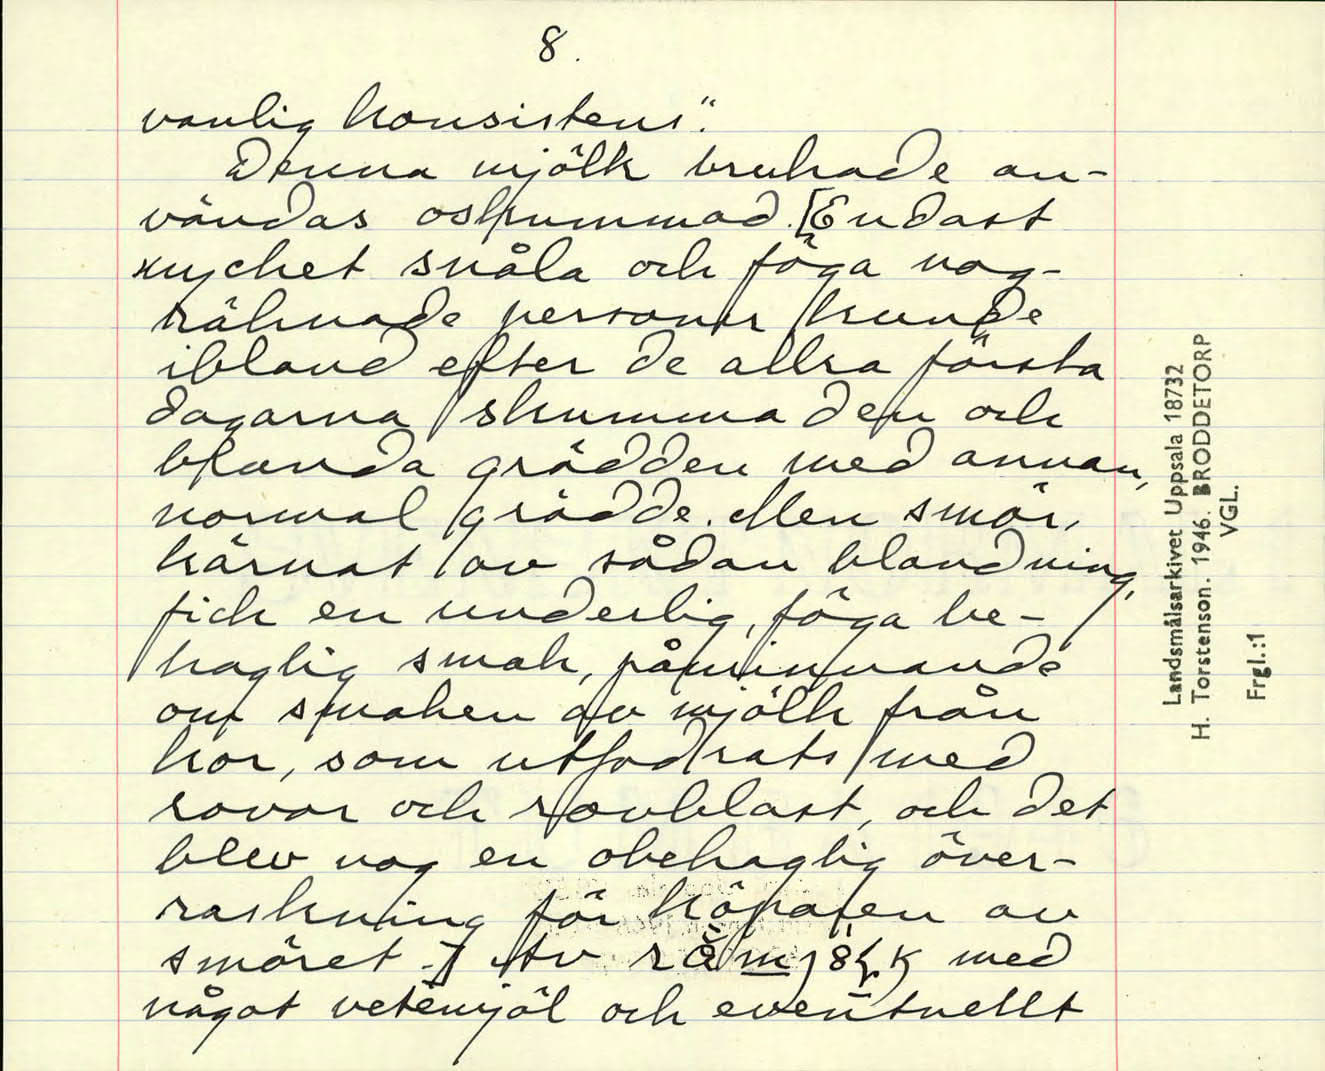 8.
vanlig konsistens".
Denna mjölk brukade an-
vändas oskummad. [Endast
mycket snåla och föga nog-
räknade personer kunde
ibland efter de allra första
dagarna skumma den och
blanda grädden med annan,
normal grädde. Men smör,
kärnat av sådan blandning,
fick en underlig, föga be-
haglig smak, påminnande
om smaken av mjölk från
kor, som utfodrats med
rovor och rovblast, och det
blev nog en obehaglig över-
raskning för köparen av
smöret.] Av med
något vetemjöl och eventuellt
Landsmålsarkivet Uppsala 18732
H. Torstenson. 1946. BRODDETORP
VGL.
Frgl.:1